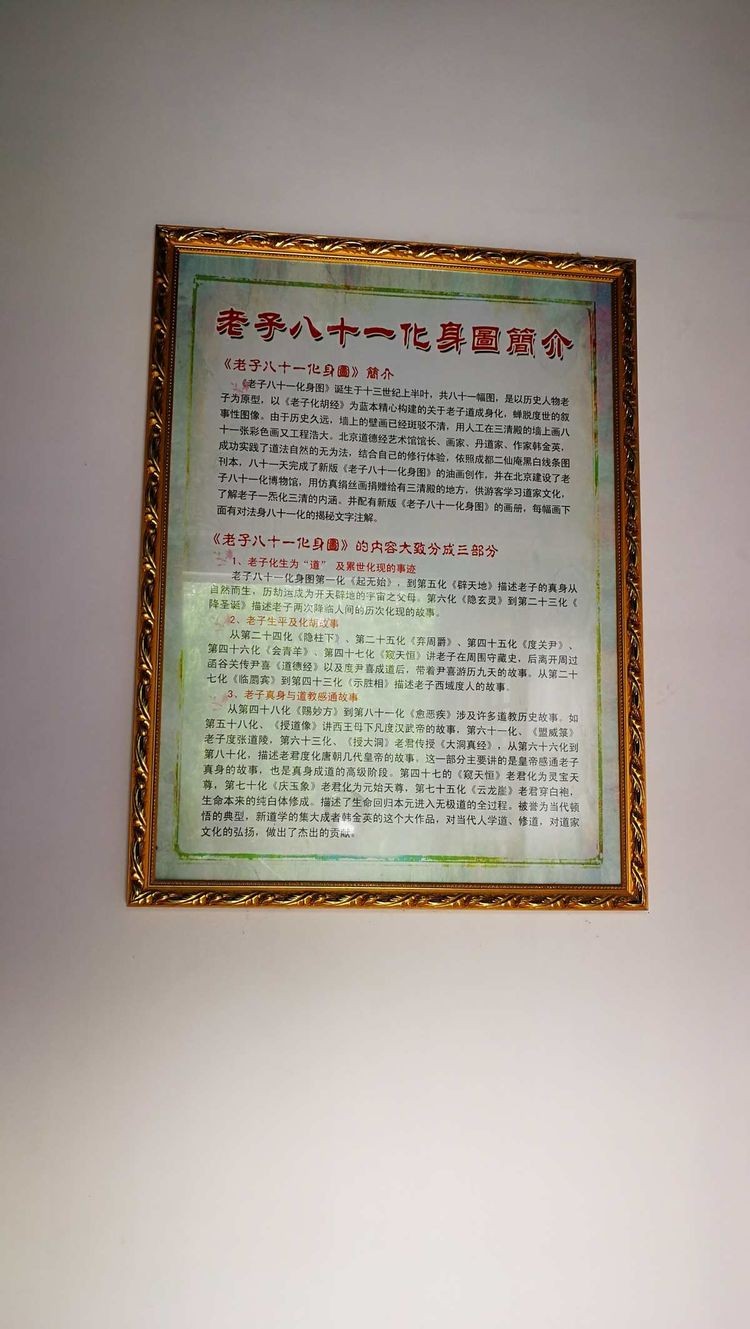 老子八十一化身圖簡介
《老子八十一化身圖》簡介
《老子八十一化身图》诞生于十三世纪上半叶，共八十一幅图，是以历史人物老
子为原型，以《老子化胡经》为蓝本精心构建的关于老子道成身化，蝉脱度世的叙
事性图像。由于历史久远，墙上的壁画已经斑驳不清，用人工在三清殿的墙上画八
十一张彩色画又工程浩大。北京道德经艺术馆馆长、画家、丹道家、作家韩金英，
成功实践了道法自然的无为法，结合自己的修行体验，依照成都二仙庵黑白线条图
刊本，八十一天完成了新版《老子八十一化身图》的油画创作，并在北京建设了老
子八十一化博物馆，用仿真绢丝画捐赠给有三清殿的地方，供游客学习道家文化，
了解老子一炁化三清的内涵。并配有新版《老子八十一化身图》的画册，每幅画下
面有对法身八十一化的揭秘文字注解。
《老子八十一化身圖》的内容大致分成三部分
1、老子化生为“道” 及累世化现的事迹
老子八十一化身图第一化《起无始》，到第五化《辟天地》描述老子的真身从
自然而生，历劫运成为开天辟地的宇宙之父母。第六化《隐玄灵》到第二十三化《
降圣诞》描述老子两次降临人间的历次化现的故事。
2、老子生平及化胡故事
从第二十四化《隐柱下》、第二十五化《弃周爵》、第四十五化《度关尹》、
第四十六化《会青羊》、第四十七化《窥天恒》讲老子在周围守藏史，后离开周过
函谷关传尹喜《道德经》以及度尹喜成道后，带着尹喜游历九天的故事。从第二十
七化《临罽宾》到第四十三化《示胜相》描述老子西域度人的故事。
3、老子真身与道教感通故事
从第四十八化《赐妙方》到第八十一化《愈恶疾》涉及许多道教历史故事。如
第五十八化、《授道像》讲西王母下凡度汉武帝的故事，第六十一化、《盟威箓》
老子度张道陵，第六十三化、《授大洞》老君传授《大洞真经》，从第六十六化到
第八十化，描述老君度化唐朝几代皇帝的故事，这一部分主要讲的是皇帝感通老子
真身的故事，也是真身成道的高级阶段。第四十七的《窥天恒》老君化为灵宝天
尊，第七十化《庆玉象》老君化为元始天尊，第七十五化《云龙崖》老君穿白袍，
生命本来的纯白体修成。描述了生命回归本元进入无极道的全过程。被誉为当代顿
悟的典型，新道学的集大成者韩金英的这个大作品，对当代人学道、修道，对道家
文化的弘扬，做出了杰出的贡献。